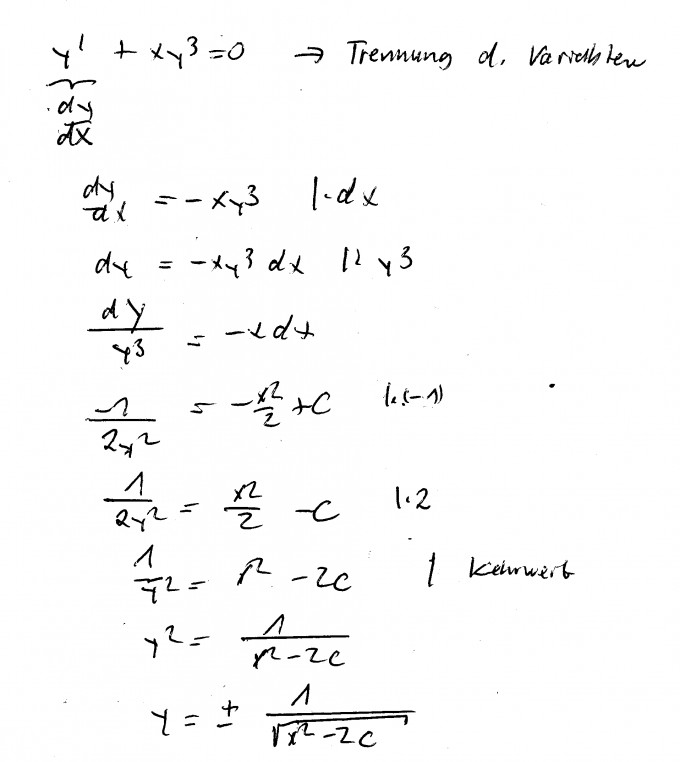 y' + xy³ = 0 → Trennung d. Variablen
dy
dx
dy/dx = -xy³ |·dx
dy = -xy³ dx |: y³
dy/y³ = -x dx
-1/2y² = -x²/2 + C |·(-1)
1/2y² = x²/2 - C |·2
1/y² = x² - 2C | Kehrwert
y² = 1/x²-2C
y = ± 1/√x²-2C